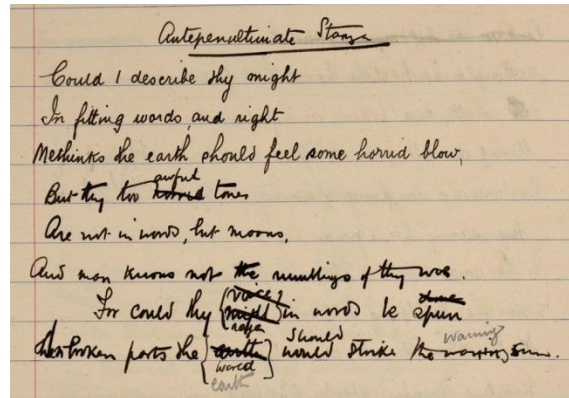 Antepenultimate Stanza
Could I describe thy might
In fitting words, and right
Methinks the earth should feel some horrid blow,
But thy too horrid awful tones
Are not in words, but moans,
And man knows not the rumblings of thy woe.
For could thy { voice, might rage } in words be spun
broken parts the { earth world earth } should would strike the waning sun.